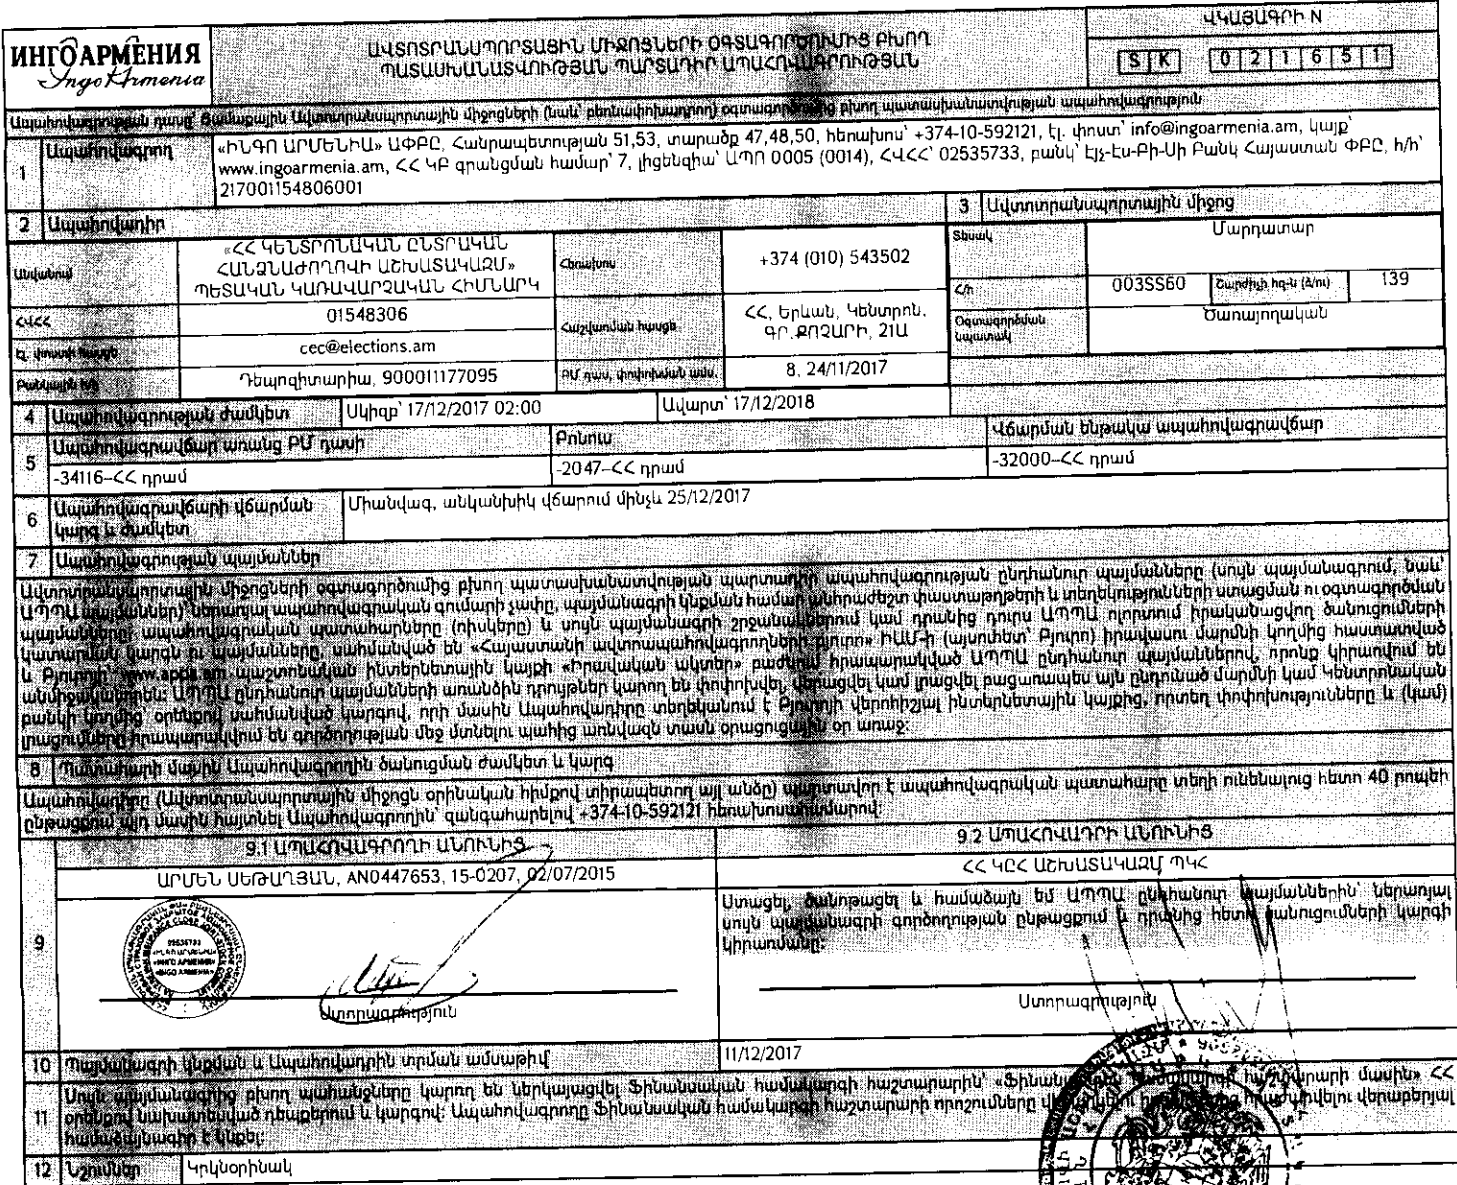 ИНГО АРМЕНИЯ
Ingo Armenia
ԱՎՏՈՏՐԱՆՍՊՈՐՏԱՅԻՆ ՄԻՋՈՑՆԵՐԻ ՕԳՏԱԳՈՐԾՈՒՄԻՑ ԲԽՈՂ
ՊԱՏԱՍԽԱՆԱՏՎՈՒԹՅԱՆ ՊԱՐՏԱԴԻՐ ԱՊԱՀՈՎԱԳՐՈՒԹՅԱՆ
ՎԿԱՅԱԳԻՐ N
S K 0 2 1 6 5 1
Ապահովագրության դասը՝ Ցամաքային Ավտոտրանսպորտային միջոցների (նաև՝ բեռնափոխադրող) օգտագործումից բխող պատասխանատվության ապահովագրություն
1 Ապահովագրող
«ԻՆԳՈ ԱՐՄԵՆԻԱ» ԱՓԲԸ, Հանրապետության 51,53, տարածք 47,48,50, հեռախոս՝ +374-10-592121, էլ. փոստ՝ info@ingoarmenia.am, կայք՝
www.ingoarmenia.am, ՀՀ ԿԲ գրանցման համար՝ 7, լիցենզիա՝ ԱՊՈ 0005 (0014), ՀՎՀՀ՝ 02535733, բանկ՝ Էյչ-Էս-Բի-Սի Բանկ Հայաստան ՓԲԸ, հ/հ՝
217001154806001
2 Ապահովադիր
3 Ավտոտրանսպորտային միջոց
Անվանում
«ՀՀ ԿԵՆՏՐՈՆԱԿԱՆ ԸՆՏՐԱԿԱՆ
ՀԱՆՁՆԱԺՈՂՈՎԻ ԱՇԽԱՏԱԿԱԶՄ»
ՊԵՏԱԿԱՆ ԿԱՌԱՎԱՐՉԱԿԱՆ ՀԻՄՆԱՐԿ
Հեռախոս
+374 (010) 543502
Տեսակ
Մարդատար
Հ/հ
003SS60
Շարժիչի հզ-ն (ձ/ու)
139
ՀՎՀՀ
01548306
Հաշվառման հասցե
ՀՀ, Երևան, Կենտրոն,
ԳՐ.ՔՈՉԱՐԻ, 21Ա
Օգտագործման
նպատակ
Ծառայողական
Էլ. փոստի հասցե
cec@elections.am
Բանկային հ/հ
Դեպոզիտարիա, 900011177095
ԲՄ դաս, փոփոխման ամս.
8, 24/11/2017
4 Ապահովագրության ժամկետ
Սկիզբ՝ 17/12/2017 02:00
Ավարտ՝ 17/12/2018
5 Ապահովագրավճար առանց ԲՄ դասի
Բոնուս
Վճարման ենթակա ապահովագրավճար
-34116-ՀՀ դրամ
-2047-ՀՀ դրամ
-32000-ՀՀ դրամ
6 Ապահովագրավճարի վճարման
կարգ և ժամկետ
Միանվագ, անկանխիկ վճարում մինչև 25/12/2017
7 Ապահովագրության պայմաններ
Ավտոտրանսպորտային միջոցների օգտագործումից բխող պատասխանատվության պարտադիր ապահովագրության ընդհանուր պայմանները (սույն պայմանագրում, նաև՝
ԱՊՊԱ պայմաններ)՝ ներառյալ ապահովագրական գումարի չափը, պայմանագրի կնքման համար անհրաժեշտ փաստաթղթերի և տեղեկությունների ստացման ու օգտագործման
պայմանները, ապահովագրական պատահարները (ռիսկերը) և սույն պայմանագրի շրջանակներում կամ դրանից դուրս ԱՊՊԱ ոլորտում իրականացվող ծանուցումների
կատարման կարգն ու պայմանները, սահմանված են «Հայաստանի ավտոապահովագրողների բյուրո» ԻԱՄ-ի (այսուհետ՝ Բյուրո) իրավասու մարմնի կողմից հաստատված
և Բյուրոյի՝ www.appa.am պաշտոնական ինտերնետային կայքի «Իրավական ակտեր» բաժնում հրապարակված ԱՊՊԱ ընդհանուր պայմաններով, որոնք կիրառվում են
անմիջականորեն: ԱՊՊԱ ընդհանուր պայմանների առանձին դրույթներ կարող են փոփոխվել, վերացվել կամ լրացվել բացառապես այն ընդունած մարմնի կամ Կենտրոնական
բանկի կողմից՝ օրենքով սահմանված կարգով, որի մասին Ապահովադիրը տեղեկանում է Բյուրոյի վերոհիշյալ ինտերնետային կայքից, որտեղ փոփոխությունները և (կամ)
լրացումները հրապարակվում են գործողության մեջ մտնելու պահից առնվազն տասն օրացուցային օր առաջ:
8 Պատահարի մասին Ապահովագրողին ծանուցման ժամկետ և կարգ
Ապահովադիրը (Ավտոտրանսպորտային միջոցն օրինական հիմքով տիրապետող այլ անձը) պարտավոր է ապահովագրական պատահարը տեղի ունենալուց հետո 40 րոպեի
ընթացքում այդ մասին հայտնել Ապահովագրողին՝ զանգահարելով +374-10-592121 հեռախոսահամարով:
9
9.1 ԱՊԱՀՈՎԱԳՐՈՂԻ ԱՆՈՒՆԻՑ
9.2 ԱՊԱՀՈՎԱԴՐԻ ԱՆՈՒՆԻՑ
ԱՐՄԵՆ ՍԵԹԱՂՅԱՆ, AN0447653, 15-0207, 02/07/2015
ՀՀ ԿԸՀ ԱՇԽԱՏԱԿԱԶՄ ՊԿՀ
Ստացել, ծանոթացել և համաձայն եմ ԱՊՊԱ ընդհանուր պայմաններին՝ ներառյալ
սույն պայմանագրի գործողության ընթացքում և դրանից հետո ծանուցումների կարգի
կիրառմանը:
02535733
«ИНГО АРМЕНИЯ»
«INGO ARMENIA»
Ստորագրություն
Ստորագրություն
10 Պայմանագրի կնքման և Ապահովադրին տրման ամսաթիվ
11/12/2017
11 Սույն պայմանագրից բխող պահանջները կարող են ներկայացվել Ֆինանսական համակարգի հաշտարարին՝ «Ֆինանսական համակարգի հաշտարարի մասին» ՀՀ
օրենքով նախատեսված դեպքերում և կարգով: Ապահովագրողը Ֆինանսական համակարգի հաշտարարի որոշումները հրաժարվելու վերաբերյալ
համաձայնագիր է կնքել:
12 Նշումներ
Կրկնօրինակ